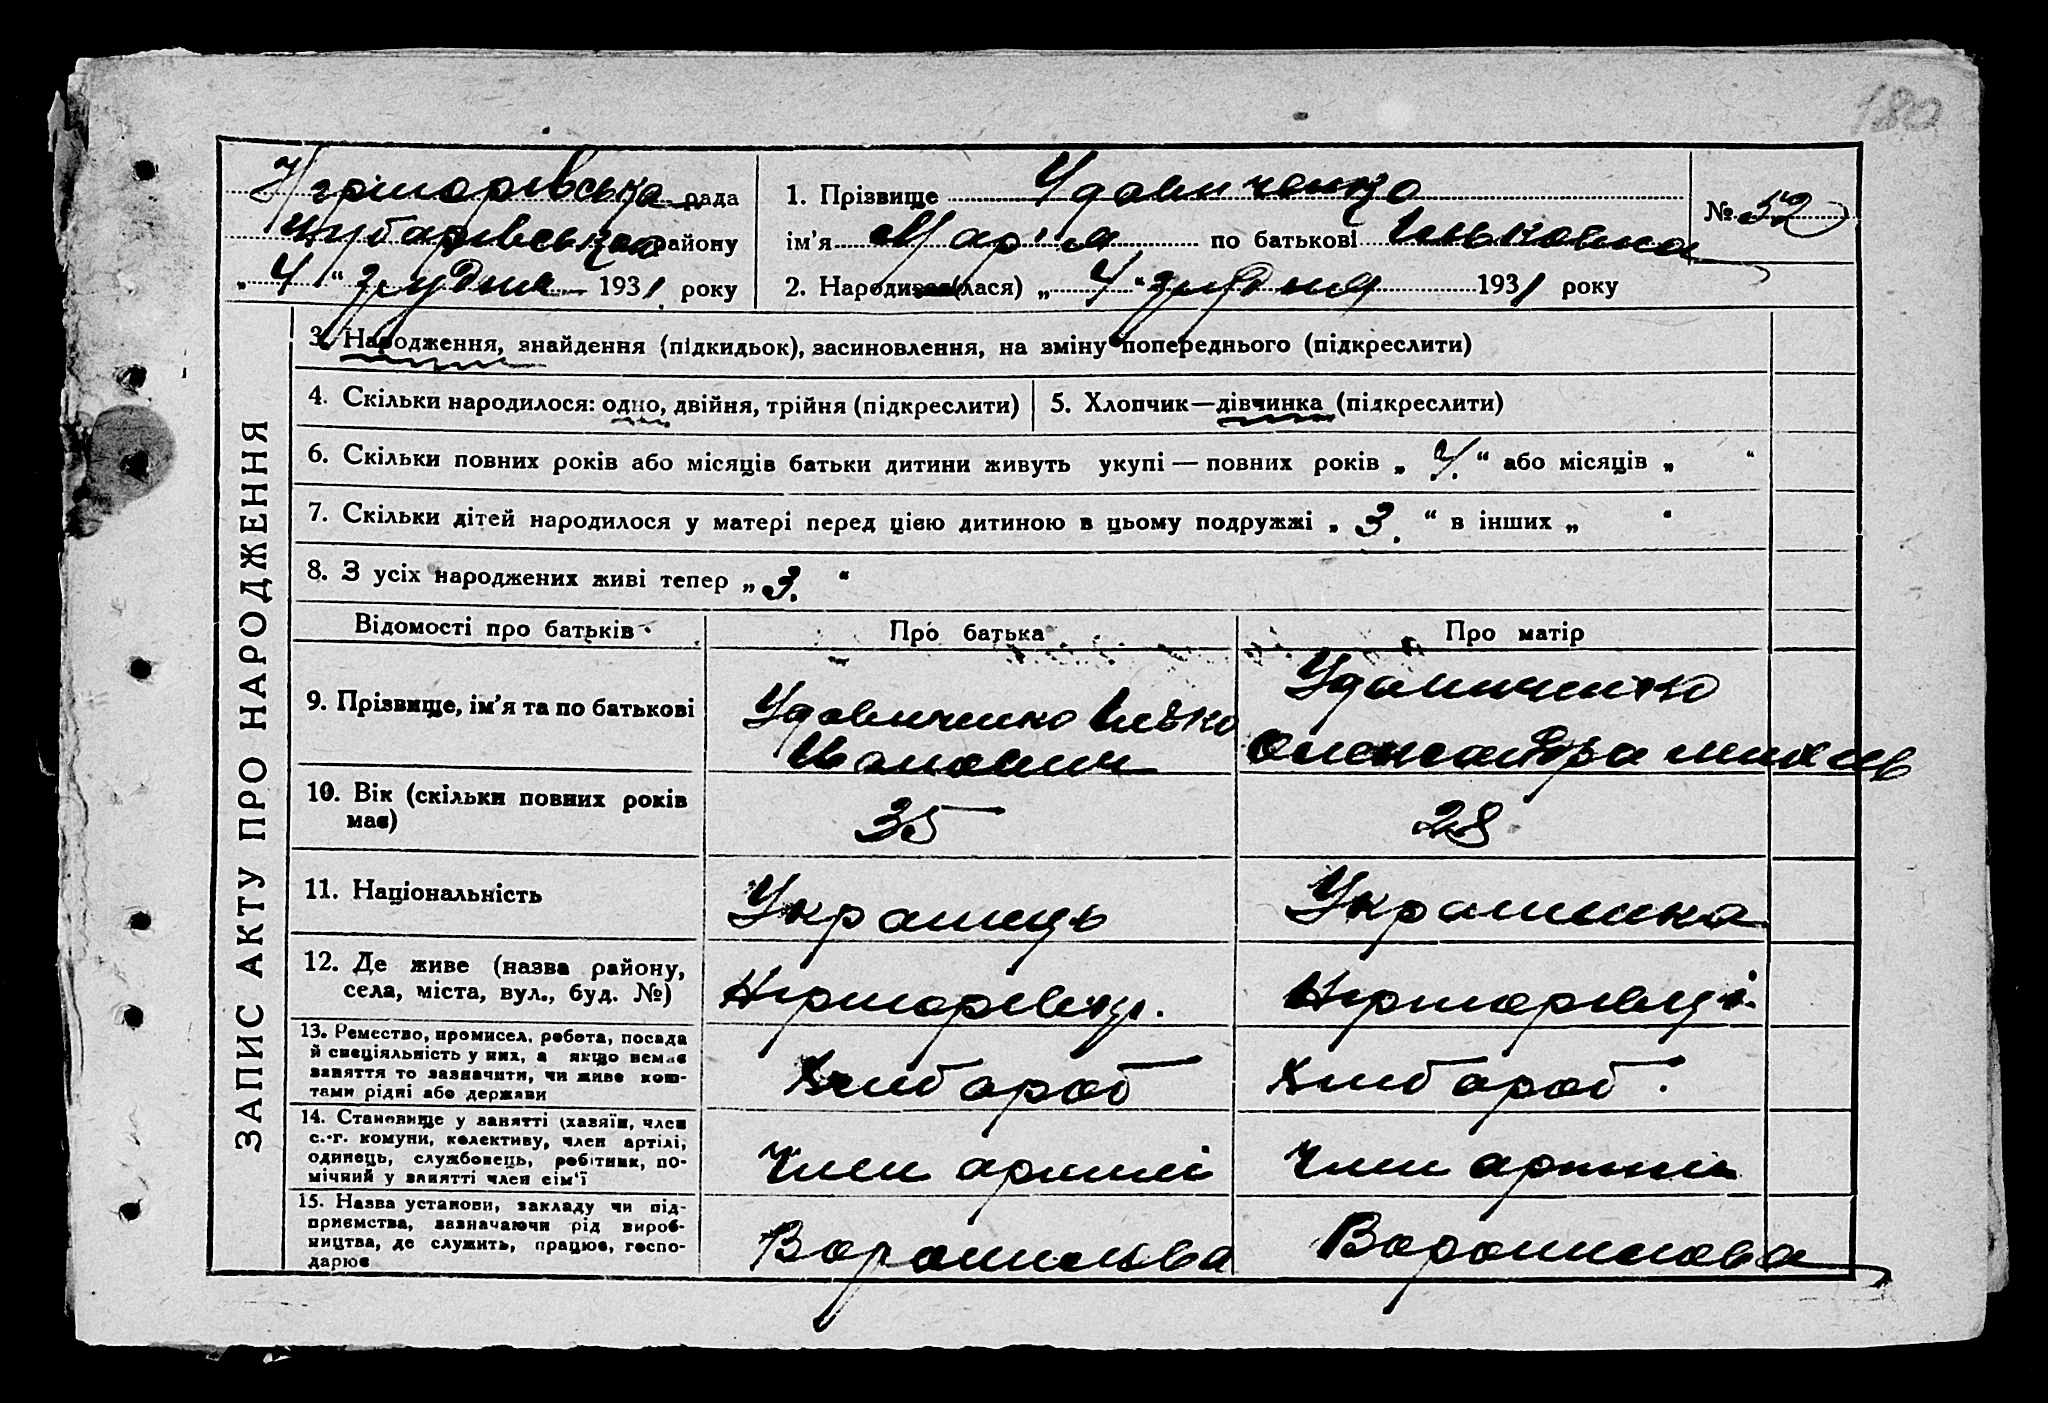 180
Григорівська рада
Чубарівського району
„ 4 “ грудня 1931 року
1. Прізвище Удовиченко
ім'я Марія по батькові Ільковна
2. Народився(лася) „ 4 “ грудня 1931 року
№ 52
ЗАПИС АКТУ ПРО НАРОДЖЕННЯ
3. Народження, знайдення (підкидьок), засиновлення, на зміну попереднього (підкреслити)
4. Скільки народилося: одно, двійня, трійня (підкреслити)
5. Хлопчик—дівчинка (підкреслити)
6. Скільки повних років або місяців батьки дитини живуть укупі — повних років „ “ або місяців „ “
7. Скільки дітей народилося у матері перед цією дитиною в цьому подружжі „ 3. “ в інших „ “
8. З усіх народжених живі тепер „ 3. “
Відомості про батьків
Про батька
Про матір
9. Прізвище, ім'я та по батькові
Удовиченко Илько
Иванович
Удовиченко
Олександра михаів
10. Вік (скільки повних років
має)
35
28
11. Національність
Украінець
Украинка
12. Де живе (назва району,
села, міста, вул., буд. №)
Григорівці.
13. Ремество, промисел, робота, посада
й спеціяльність у них, а якщо немає
заняття то зазначити, чи живе кош-
тами рідні або держави
Хлибароб
Хлибароб.
14. Становище у занятті (хазяїн, член
с.-г. комуни, колективу, член артілі,
одинець, службовець, робітник, по-
мічний у занятті член сім'ї
Член артилі
Член артилі
15. Назва установи, закладу чи під-
приємства, зазначаючи рід вироб-
ництва, де служить, працює, госпо-
дарює
Ворошилова
Ворошилова